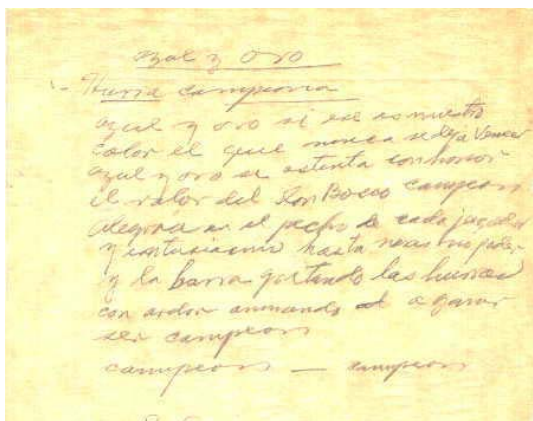 azul y oro
- Hurra campeona
azul y oro si ese es nuestro
color el que nunca se deja Vencer
azul y oro se ostenta con honor
el valor del Don Bosco campeon
Alegria en el pecho de cada jugador
y entusiasmo hasta mas no poder
y la barra gritando las hurras
con ardor animando a ganar
ser campeon
campeon — campeon